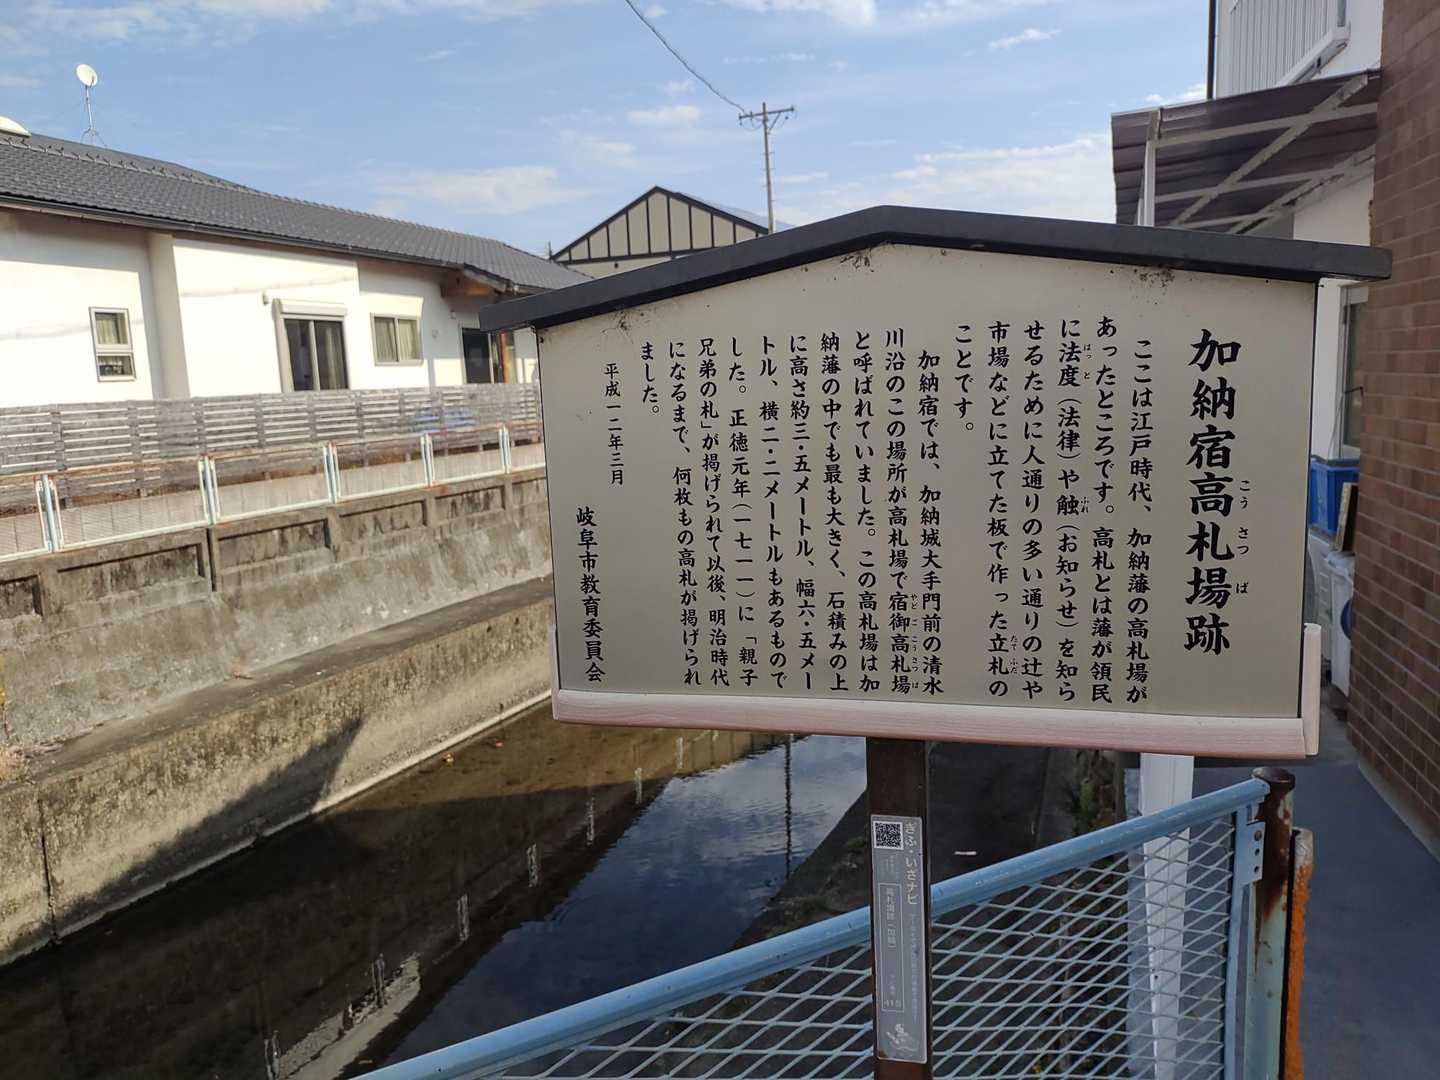 加納宿高札場跡
こうさつば
ここは江戸時代、加納藩の高札場が
あったところです。高札とは藩が領民
に法度（法律）や触（お知らせ）を知ら
はっと
ふれ
せるために人通りの多い通りの辻や
市場などに立てた板で作った立札の
たてふだ
ことです。
加納宿では、加納城大手門前の清水
川沿のこの場所が高札場で宿御高札場
やどごこうさつば
と呼ばれていました。この高札場は加
納藩の中でも最も大きく、石積みの上
に高さ約三・五メートル、幅六・五メー
トル、横二・二メートルもあるもので
した。正徳元年（一七一一）に「親子
兄弟の札」が掲げられて以後、明治時代
になるまで、何枚もの高札が掲げられ
ました。
平成一二年三月
岐阜市教育委員会
ぎふ・いざナビ
高札場跡（加納）
415